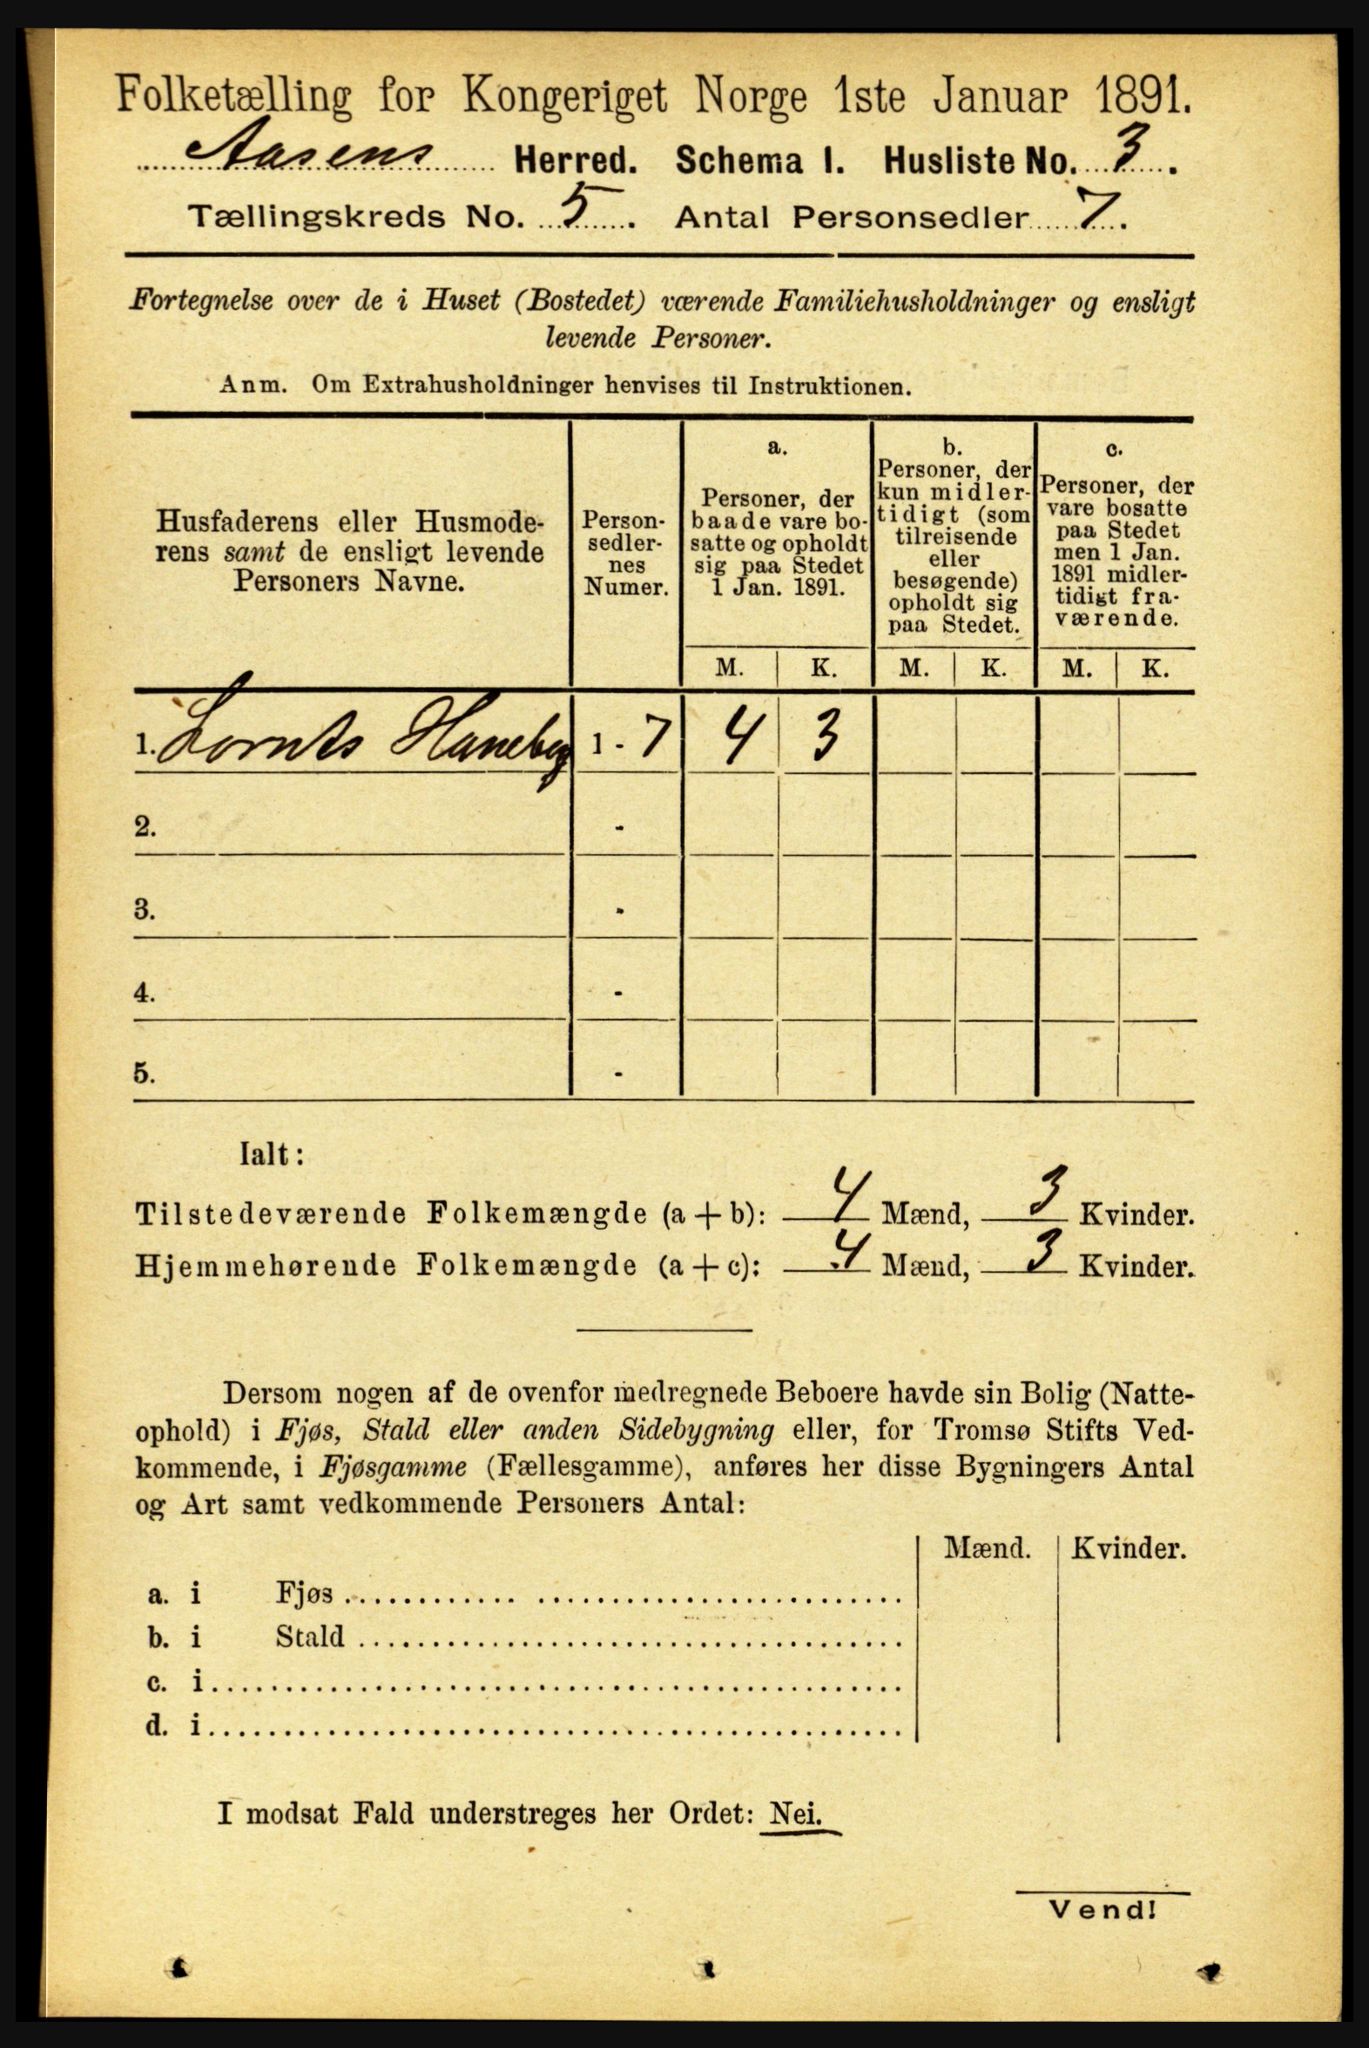 Folketælling for Kongeriget Norge 1ste Januar 1891.
Aasens Herred. Schema I. Husliste No. 3.
Tællingskreds No. 5. Antal Personsedler 7.
Fortegnelse over de i Huset (Bostedet) værende Familiehusholdninger og ensligt
levende Personer.
Anm. Om Extrahusholdninger henvises til Instruktionen.
Husfaderens eller Husmode-
rens samt de ensligt levende
Personers Navne.
Person-
sedler-
nes
Numer.
a.
Personer, der
baade vare bo-
satte og opholdt
sig paa Stedet
1 Jan. 1891.
b.
Personer, der
kun midler-
tidigt (som
tilreisende
eller
besøgende)
opholdt sig
paa Stedet.
c.
Personer, der
vare bosatte
paa Stedet
men 1 Jan.
1891 midler-
tidigt fra-
værende.
M. K. M. K. M. K.
1. Lornts Haneberg 1 - 7 4 3
2. -
3. -
4. -
5. -
Ialt:
Tilstedeværende Folkemængde (a + b): 4 Mænd, 3 Kvinder.
Hjemmehørende Folkemængde (a + c): 4 Mænd, 3 Kvinder.
Dersom nogen af de ovenfor medregnede Beboere havde sin Bolig (Natte-
ophold) i Fjøs, Stald eller anden Sidebygning eller, for Tromsø Stifts Ved-
kommende, i Fjøsgamme (Fællesgamme), anføres her disse Bygningers Antal
og Art samt vedkommende Personers Antal:
Mænd. Kvinder.
a. i Fjøs
b. i Stald
c. i
d. i
I modsat Fald understreges her Ordet: Nei.
Vend!